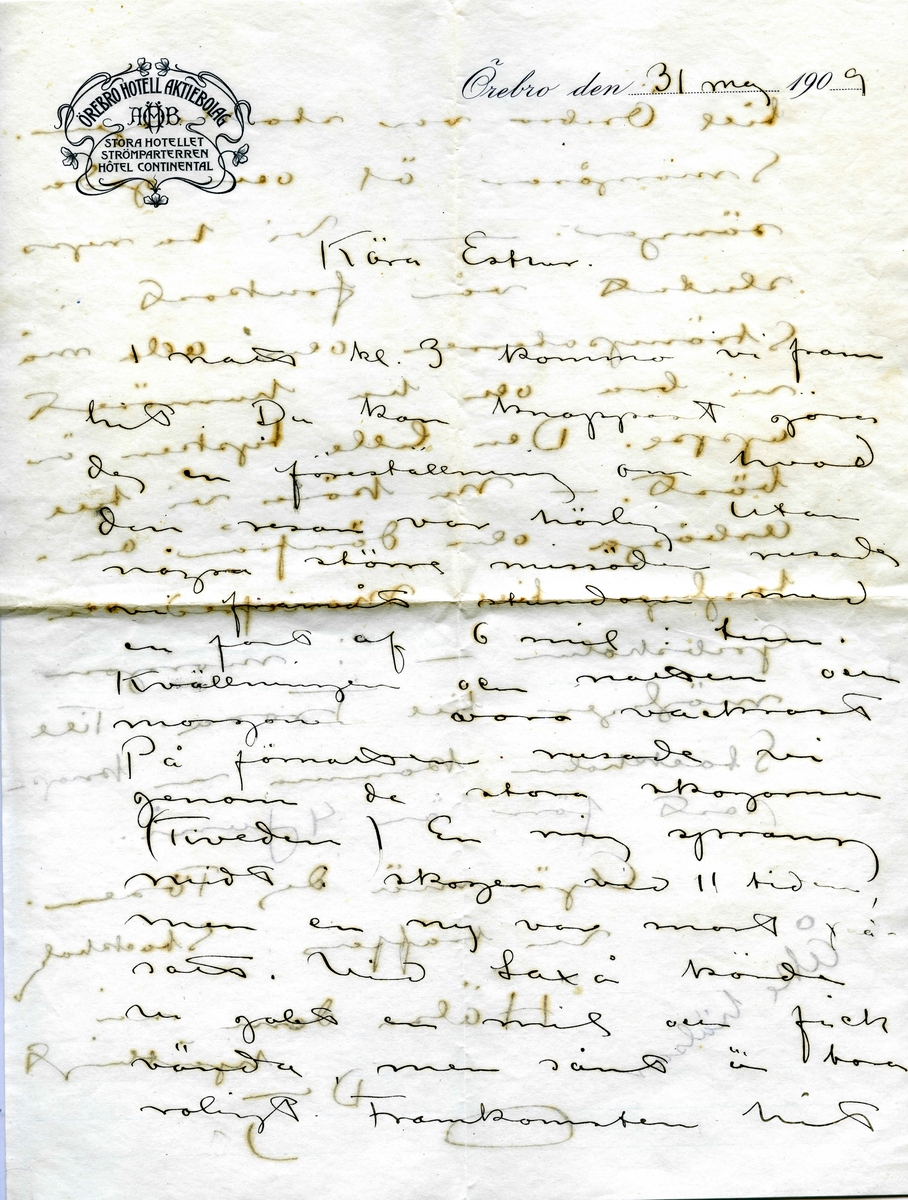 ÖREBRO HOTELL AKTIEBOLAG
ÖHAB
STORA HOTELLET
STRÖMPARTERREN
HÔTEL CONTINENTAL
Örebro den 31 maj 1909
Kära Esther.
I natt kl. 3 kommo vi fram
hit. Du kan knappast göra
dig en föreställning om hvad
den resan var härlig. Utan
några större missöden rusade
vi framåt stundom med
en fart af 6 mil i tim.
Kvällningen och natten och
morgon voro vackrast
På förnatten rusade vi
genom de stora skogarna
(Tiveden) En ring sprang
midt i skogen vid 11 tiden
men en ny var snart på-
satt. Vid Laxå körde
vi galet en mil och fick
vända, men sånt är bara
roligt. Framkomsten hit